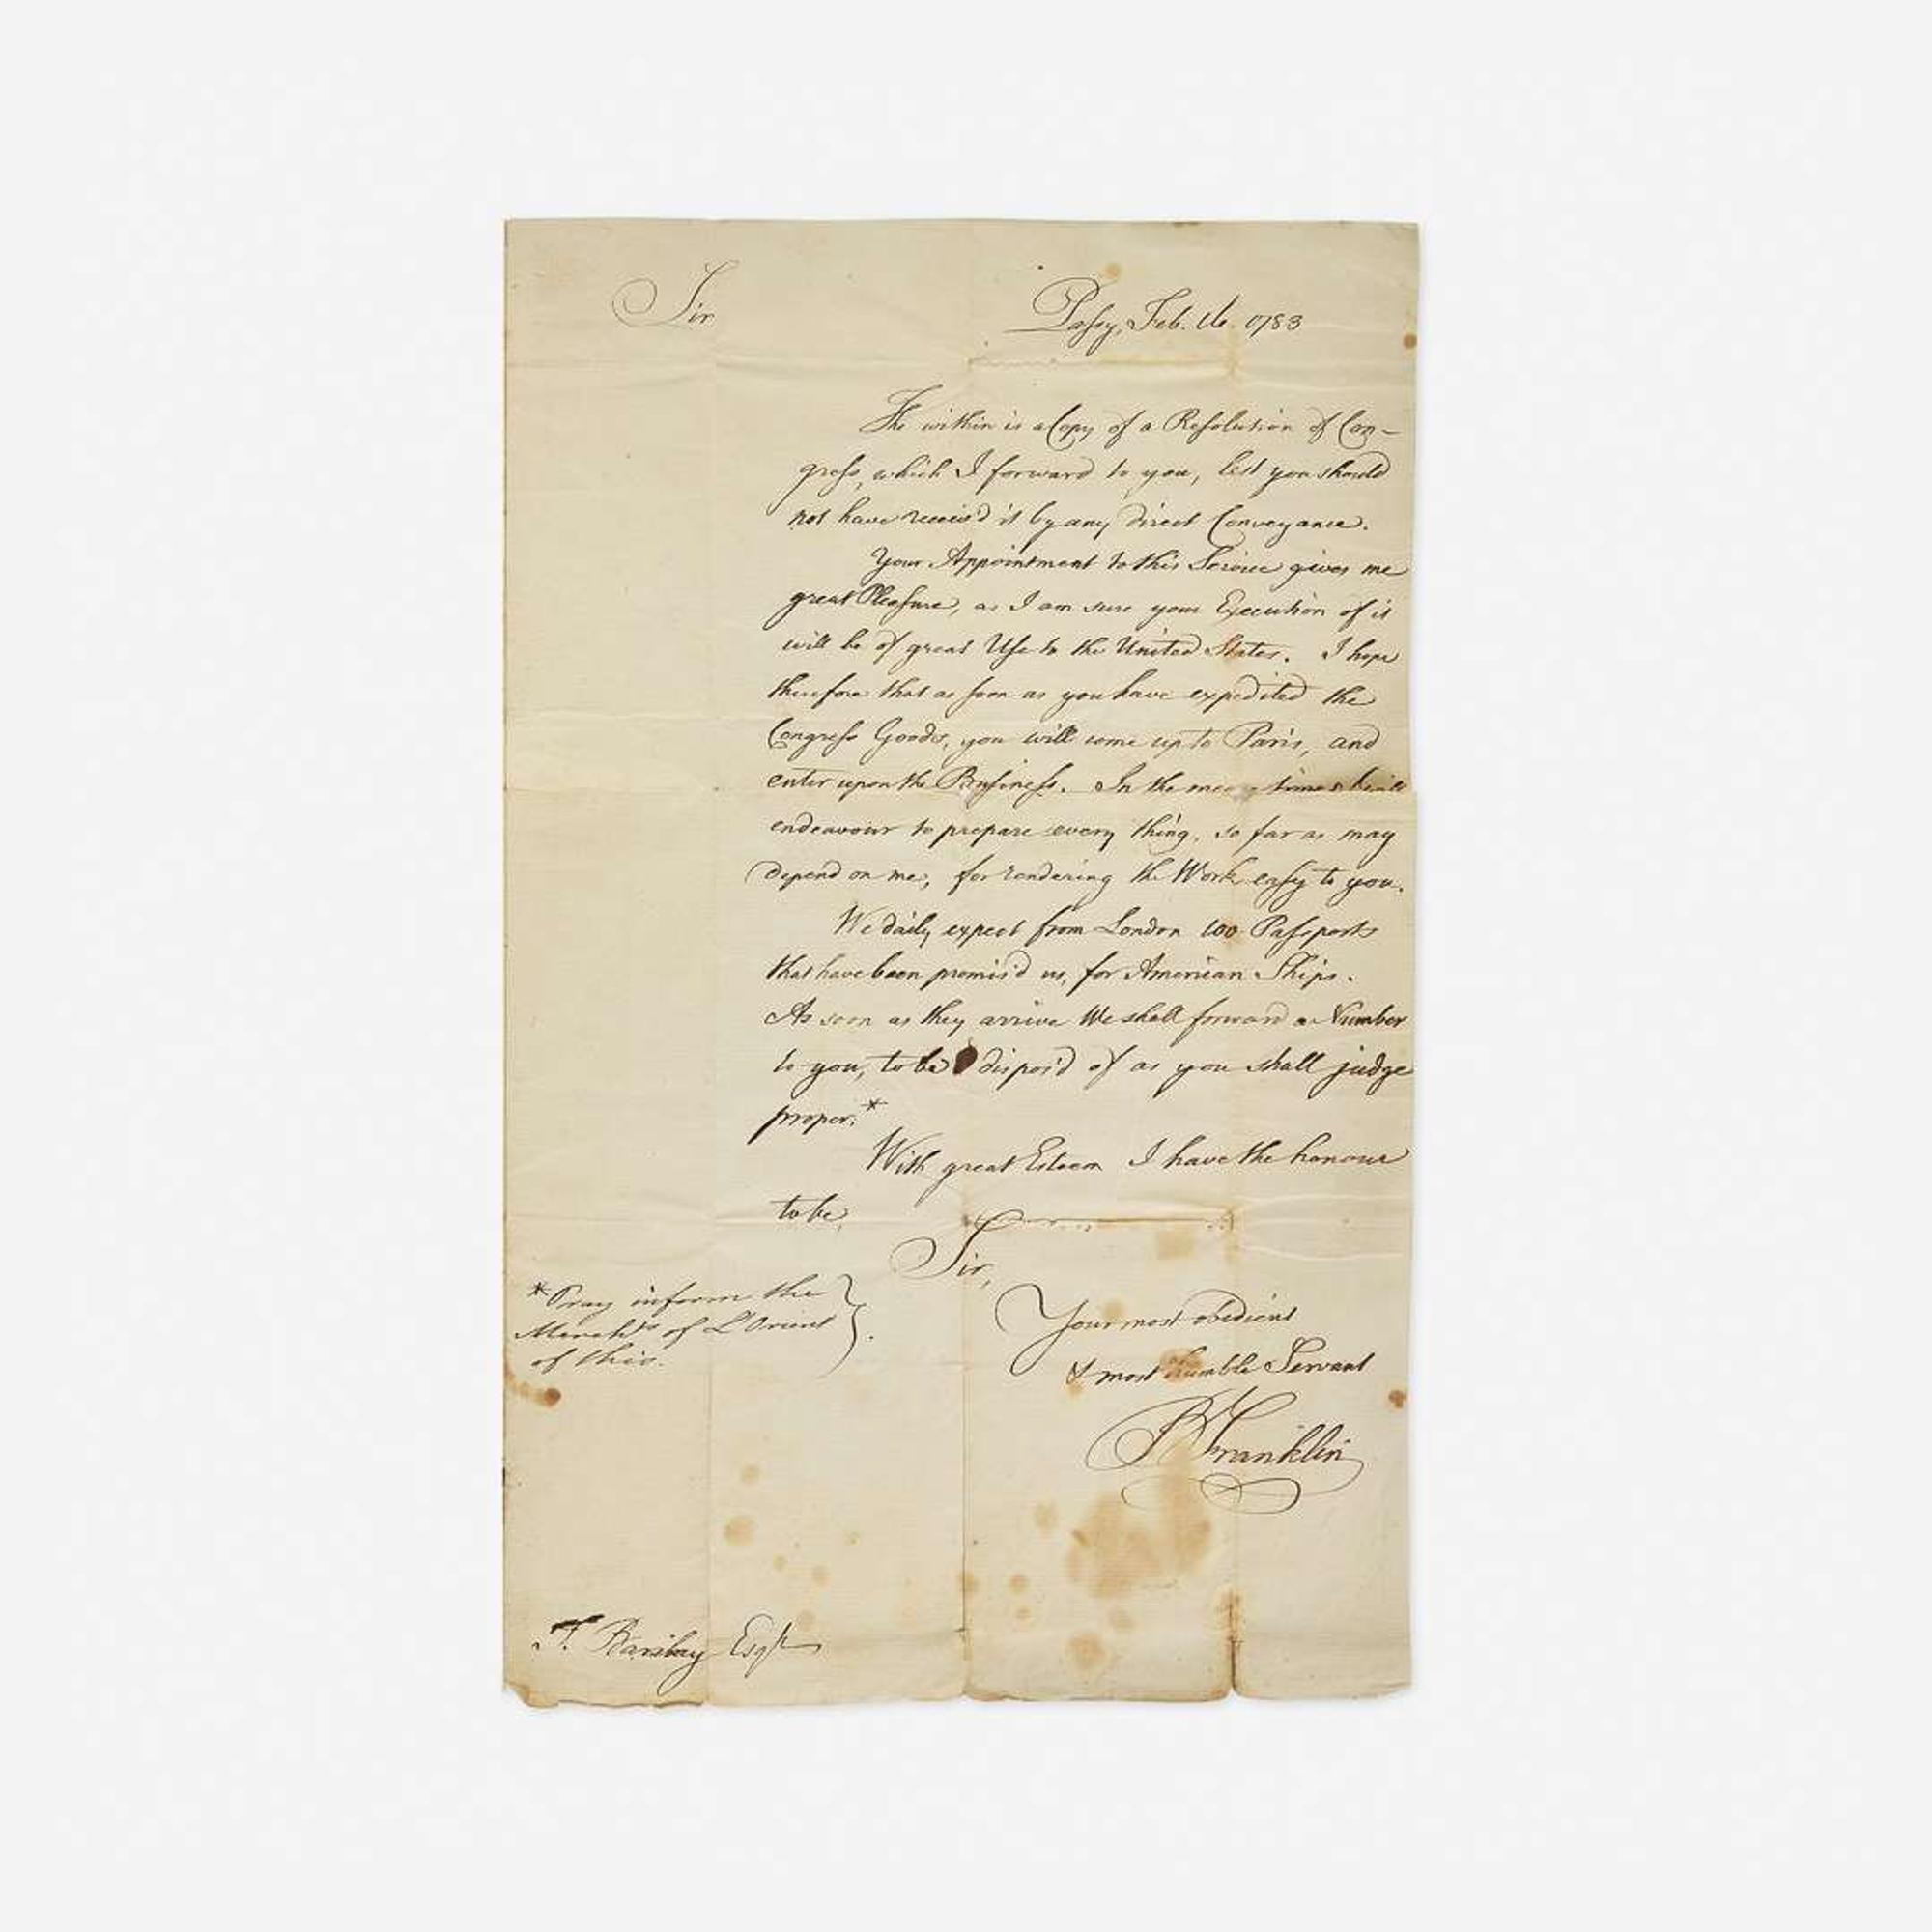 Sir
Passy, Feb. 16. 1783
The within is a Copy of a Resolution of Con-
gress, which I forward to you, lest you should
not have receiv'd it by any direct Conveyance.
Your Appointment to this Service gives me
great Pleasure, as I am sure your Execution of it
will be of great Use to the United States. I hope
therefore that as soon as you have expedited the
Congress Goods, you will come up to Paris, and
enter upon the Business. In the mean time I will
endeavour to prepare every thing, so far as may
depend on me, for rendering the Work easy to you.
We daily expect from London 100 Passports
that have been promis'd us, for American Ships.
As soon as they arrive We shall forward a Number
to you, to be dispos'd of as you shall judge
proper.*
With great Esteem I have the honour
to be,
Sir,
Your most obedient
& most humble Servant
B Franklin
*Pray inform the
Merchts of L'Orient
of this.
T. Barclay Esqr